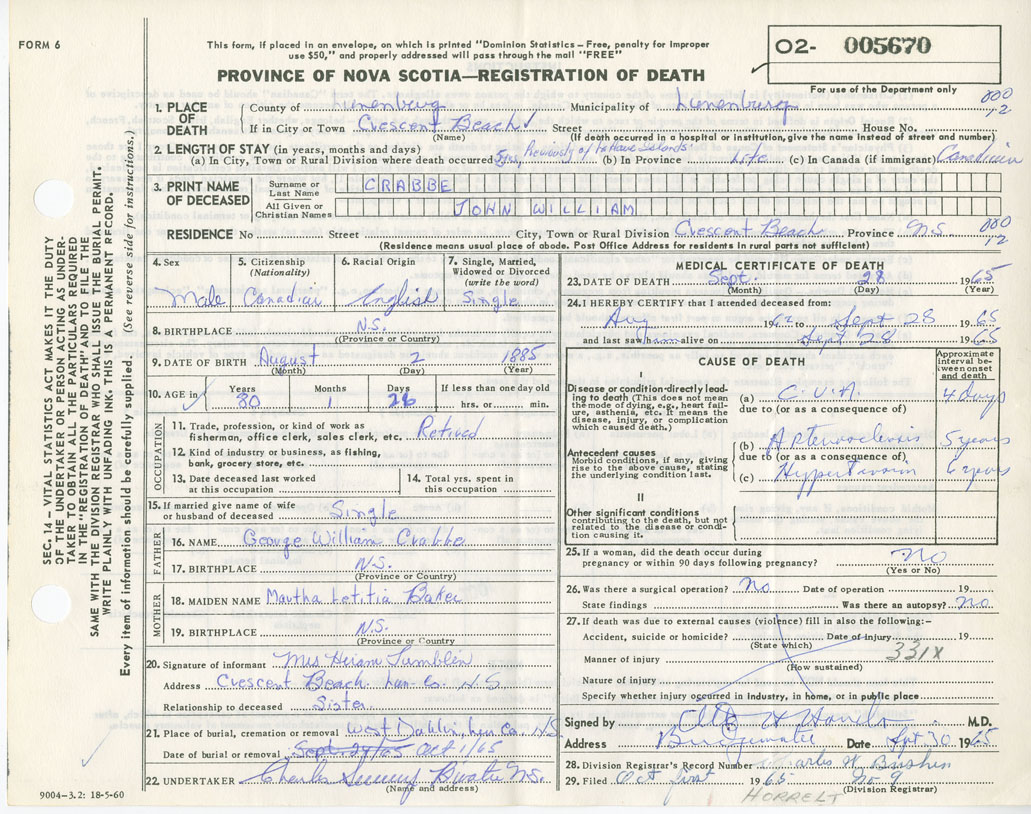 FORM 6
This form, if placed in an envelope, on which is printed "Dominion Statistics – Free, penalty for improper
use $50," and properly addressed will pass through the mail "FREE"
PROVINCE OF NOVA SCOTIA—REGISTRATION OF DEATH
02- 005670
For use of the Department only
000
12
1. PLACE OF DEATH
County of Lunenburg Municipality of Lunenburg
If in City or Town Crescent Beach Street House No.
(Name) (If death occurred in a hospital or institution, give the name instead of street and number)
2. LENGTH OF STAY (in years, months and days)
(a) In City, Town or Rural Division where death occurred 5 yrs, Previously of LaHave Islands (b) In Province Life (c) In Canada (if immigrant) Canadian
3. PRINT NAME OF DECEASED
Surname or Last Name CRABBE
All Given or Christian Names JOHN WILLIAM
RESIDENCE No Street City, Town or Rural Division Crescent Beach Province N.S.
000
12
(Residence means usual place of abode. Post Office Address for residents in rural parts not sufficient)
4. Sex Male
5. Citizenship (Nationality) Canadian
6. Racial Origin English
7. Single, Married, Widowed or Divorced (write the word) Single
8. BIRTHPLACE N.S.
(Province or Country)
9. DATE OF BIRTH August 2 1885
(Month) (Day) (Year)
10. AGE in Years 80 Months 1 Days 26 If less than one day old hrs. or min.
OCCUPATION
11. Trade, profession, or kind of work as
fisherman, office clerk, sales clerk, etc. Retired
12. Kind of industry or business, as fishing,
bank, grocery store, etc.
13. Date deceased last worked
at this occupation
14. Total yrs. spent in
this occupation
15. If married give name of wife
or husband of deceased Single
FATHER
16. NAME George William Crabbe
17. BIRTHPLACE N.S.
(Province or Country)
MOTHER
18. MAIDEN NAME Martha Letitia Baker
19. BIRTHPLACE N.S.
(Province or Country
20. Signature of informant Mrs Hiram Tumblin
Address Crescent Beach Lun. Co. N.S.
Relationship to deceased Sister
21. Place of burial, cremation or removal West Dublin, Lun Co. NS
Date of burial or removal Sept 29/65 Oct 1/65
22. UNDERTAKER Charles N.S.
(Name and address)
9004-3.2: 18-5-60
MEDICAL CERTIFICATE OF DEATH
23. DATE OF DEATH Sept. 28 1965
(Month) (Day) (Year)
24. I HEREBY CERTIFY that I attended deceased from:
Aug 1962 to Sept 28 1965
and last saw him alive on Sept 28 1965
CAUSE OF DEATH
Approximate interval between onset and death
I
Disease or condition directly leading
to death (This does not mean
the mode of dying, e.g., heart failure,
asthenia, etc. It means the
disease, injury, or complication
which caused death.)
(a) C.V.A. 4 days
due to (or as a consequence of)
Antecedent causes
Morbid conditions, if any, giving
rise to the above cause, stating
the underlying condition last.
(b) 5 years
due to (or as a consequence of)
(c) Hypertension 6 years
II
Other significant conditions
contributing to the death, but not
related to the disease or condition
causing it.
25. If a woman, did the death occur during
pregnancy or within 90 days following pregnancy? No
(Yes or No)
26. Was there a surgical operation? No Date of operation 19
State findings Was there an autopsy? No.
27. If death was due to external causes (violence) fill in also the following:–
Accident, suicide or homicide? Date of injury 19
(State which)
331X
Manner of injury
(How sustained)
Nature of injury
Specify whether injury occurred in industry, in home, or in public place
Signed by M.D.
Address Bridgewater Date Sept 30 1965
28. Division Registrar's Record Number Charles W
29. Filed Oct first 1965 No 9
(Division Registrar)
HORRELT
SEC. 14 – VITAL STATISTICS ACT MAKES IT THE DUTY
OF THE UNDERTAKER OR PERSON ACTING AS UNDER-
TAKER TO OBTAIN ALL THE PARTICULARS REQUIRED
IN THE "REGISTRATION OF DEATH" AND TO FILE THE
SAME WITH THE DIVISION REGISTRAR WHO SHALL ISSUE THE BURIAL PERMIT.
WRITE PLAINLY WITH UNFADING INK. THIS IS A PERMANENT RECORD.
Every item of information should be carefully supplied. (See reverse side for instructions.)